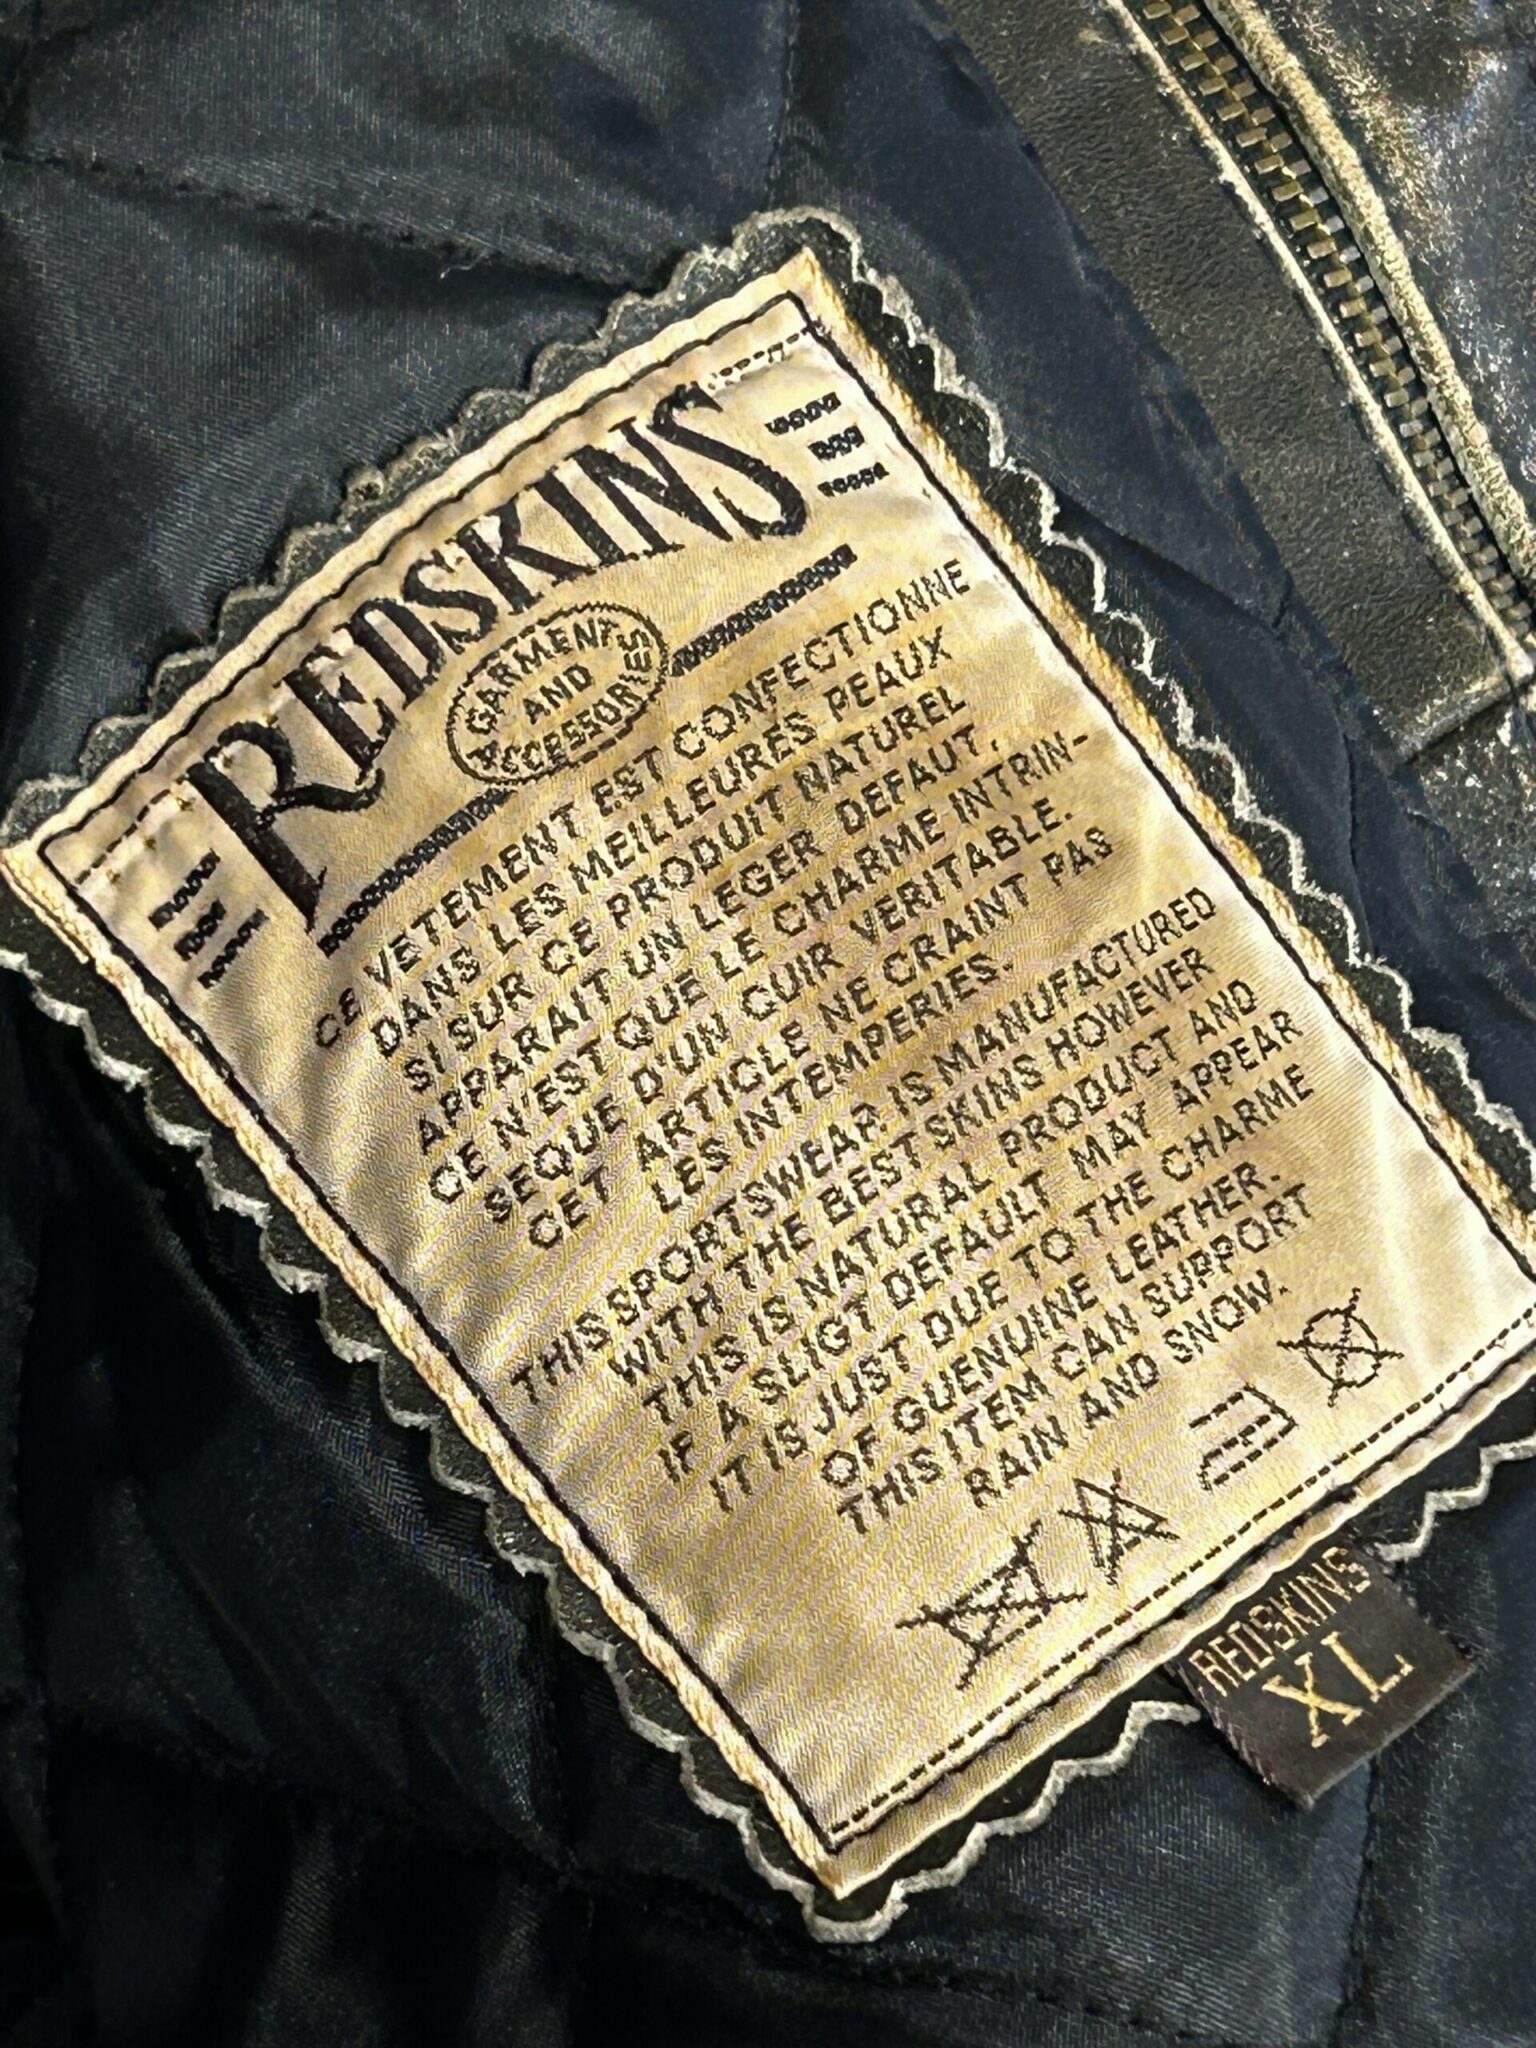 REDSKINS
GARMENTS
AND
ACCESSORIES
CE VETEMENT EST CONFECTIONNE
DANS LES MEILLEURES PEAUX
SI SUR CE PRODUIT NATUREL
APPARAIT UN LEGER DEFAUT,
CE N'EST QUE LE CHARME INTRIN-
SEQUE D'UN CUIR VERITABLE.
CET ARTICLE NE CRAINT PAS
LES INTEMPERIES.
THIS SPORTSWEAR IS MANUFACTURED
WITH THE BEST SKINS HOWEVER
THIS IS NATURAL PRODUCT AND
IF A SLIGT DEFAULT MAY APPEAR
IT IS JUST DUE TO THE CHARME
OF GUENUINE LEATHER.
THIS ITEM CAN SUPPORT
RAIN AND SNOW.
REDSKINS
XL